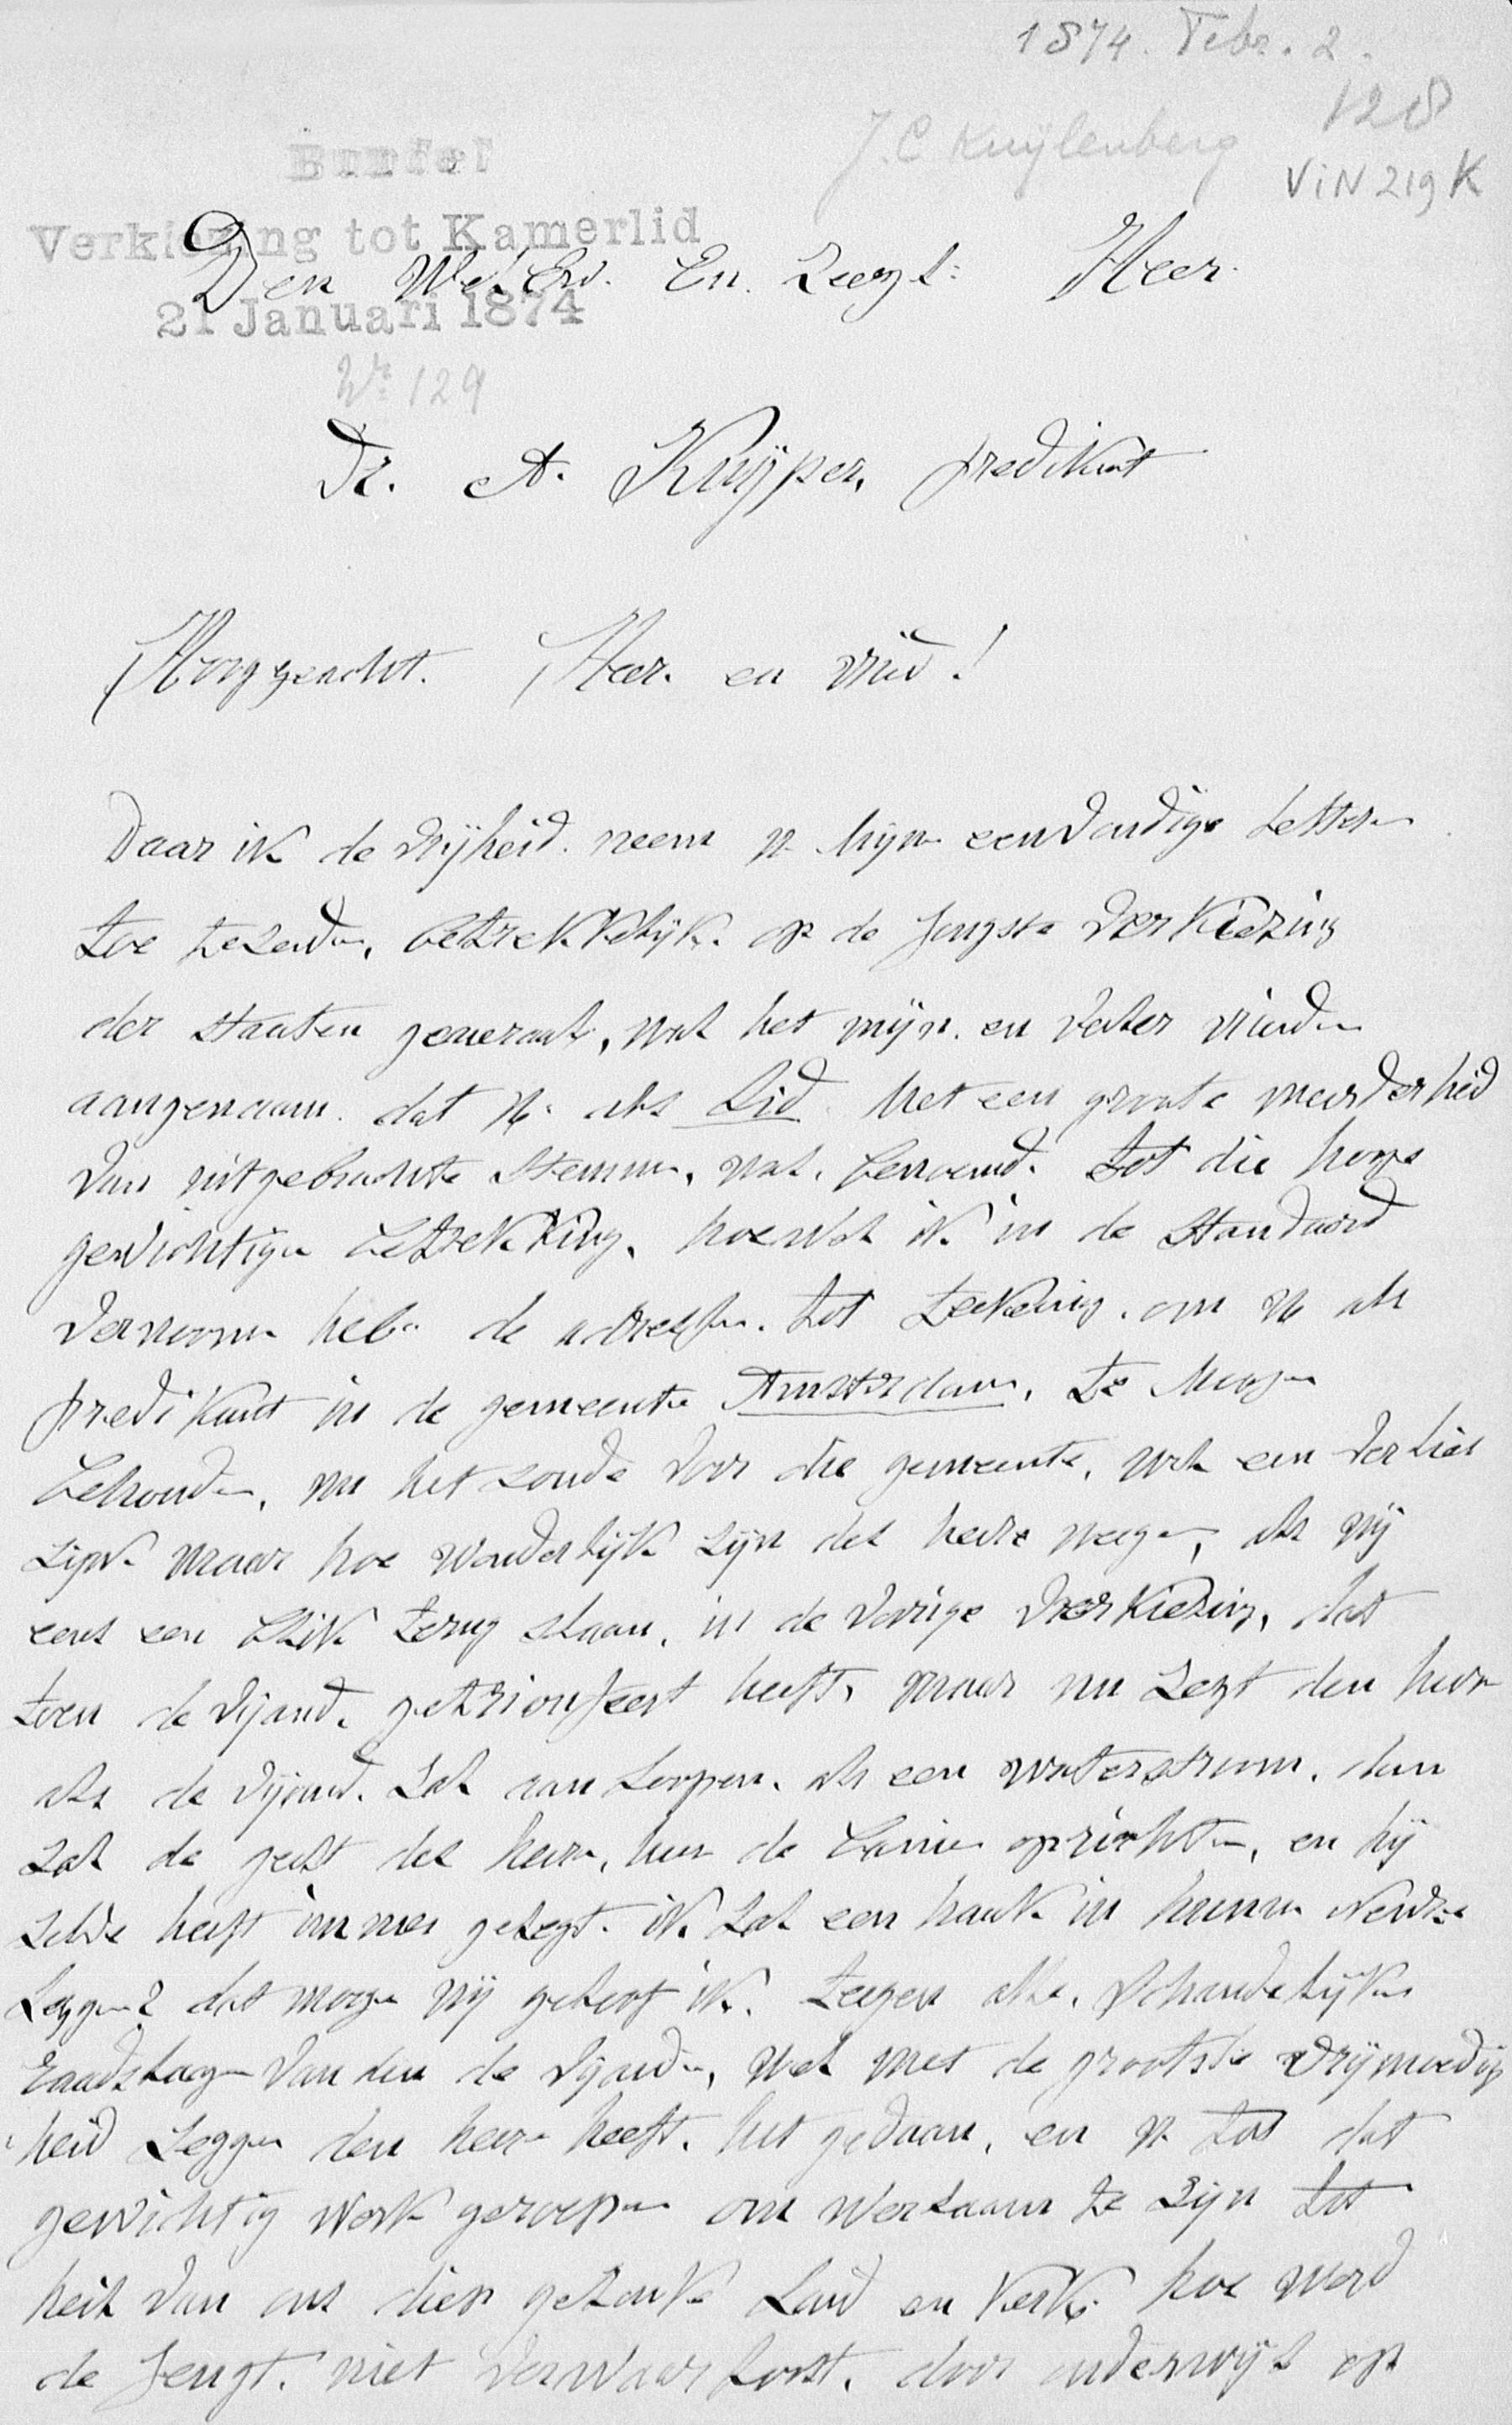 1874. Febr. 2.
128
J. C Kuijlenberg
ViN 219 K
Bundel
Verkiezing tot Kamerlid
21 Januari 1874
No 129
Den WelEw. En. Zeergel: Heer
Dr. A. Kuijper, predikant
Hooggeacht. Heer en vriend!
Daar ik de vrijheid neem u mijn eenvoudige letteren
toe te zenden, betrekkelijk op de jongste verkiezing
der Staaten generaal, was het mijn en veeler vrienden
aangenaam dat u als Lid met een groote meerderheid
van uitgebrachte stemmen, was benoemd tot die hooge
gewichtige betrekking, hoewel ik in de Standaard
vernoomen heb de adressen tot teekening om u als
predikant in de gemeente Amsterdam, te mogen
behouden, nu het zoude voor die gemeente, wel een verlies
zijn maar hoe wonderlijk zijn des heere weegen, als wij
eens een blik terug slaan, in de vorige verkiezing, dat
toen de vijand getriomfeert heeft, maar nu zegt den heere
als de vijand zal aan loopen als een waterstroom, dan
zal de geest des heeren, hun de banier oprichten, en hij
zelve heeft immer gezegt ik zal een haak in hunnen neuze
leggen? dat mogen wij geloof ik teegen alle schandelijke
raadslaegen van den de vijanden, wel met de grootste vrijmoedig
heid zeggen den heere heeft het gedaan, en u tot dat
gewichtig werk geroepen om werkzaam te zijn tot
heil van ons diep gezonke Land en Kerk hoe werd
de Jeugt niet verwaarloost, door onderwijs op